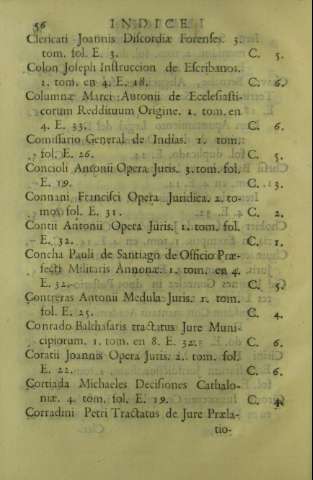 56 INDICE I
Clericati Joannis Discordiæ Forenses. 3.
tom. fol. E. 3. C. 5.
Colon Joseph Instruccion de Escribanos.
1. tom. en 4. E. 18. C. 6.
Columnæ Marci Autonii de Ecclesiasti-
corum Reddituum Origine. 1. tom. en
4. E. 33. C. 6.
Comissario General de Indias. 1. tom.
fol. E. 26. C. 5.
Concioli Antonii Opera Juris. 3. tom. fol.
E. 19. C. 13.
Connani Francisci Opera Juridica. 2. to-
mos fol. E. 31. C. 2.
Contii Antonii Opera Juris. 1. tom. fol.
E. 32. C. 1.
Concha Pauli de Santiago de Officio Præ-
fecti Militaris Annonæ. 1. tom. en 4.
E. 32. C. 5.
Contreras Antonii Medula Juris. 1. tom.
fol. E. 25. C. 4.
Conrado Balthasaris tractatus Jure Muni-
cipiorum. 1. tom. en 8. E. 32. C. 6.
Coratii Joannis Opera Juris. 2. tom. fol.
E. 22. C. 6.
Cortiada Michaeles Decisiones Cathalo-
niæ. 4. tom. fol. E. 19. C. 4.
Corradini Petri Tractatus de Jure Præla-
tio-